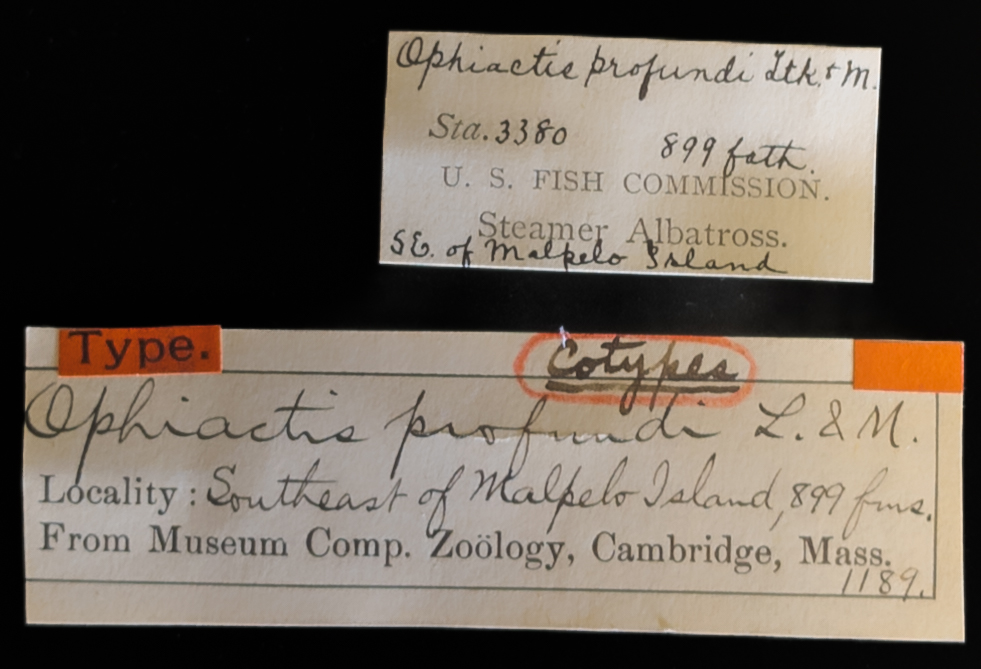 Ophiactis profundi Ltk. & M.
Sta. 3380 899 fath.
U. S. FISH COMMISSION.
Steamer Albatross.
SE. of Malpelo Island
Type. Cotypes
Ophiactis profundi L. & M.
Locality: Southeast of Malpelo Island, 899 fms.
From Museum Comp. Zoölogy, Cambridge, Mass.
1189.